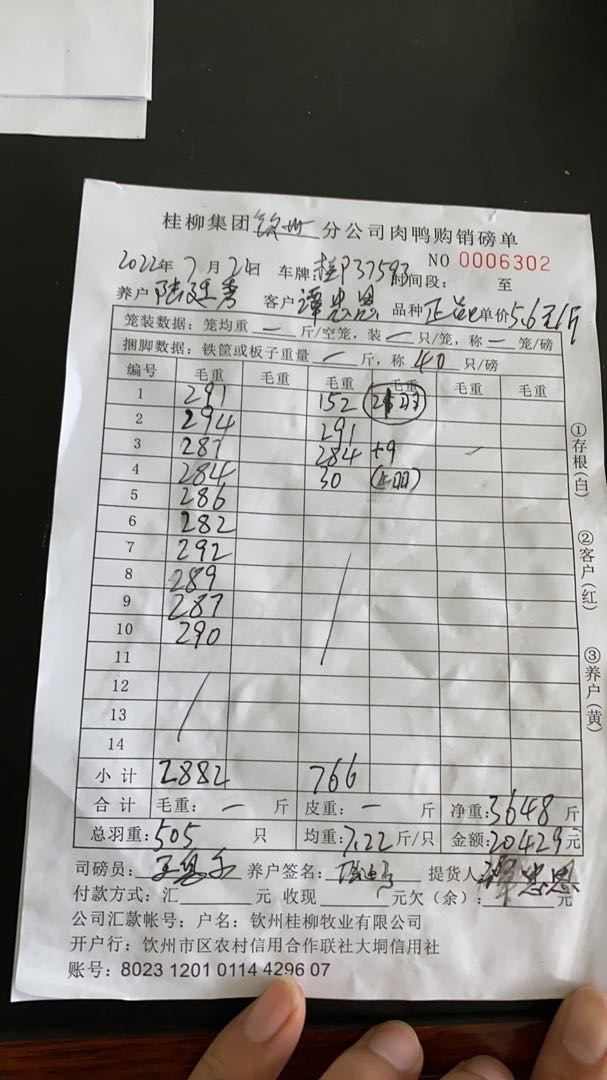 桂柳集团钦州分公司肉鸭购销磅单
NO 0006302
2022年7月24日 车牌:桂P37593 时间段: 至
养户 陆廷秀 客户 谭忠恩 品种 正 单价5.6元/斤
笼装数据:笼均重 一 斤/空笼,装 一 只/笼,称 一 笼/磅
捆脚数据:铁筐或板子重量 一 斤,称 40 只/磅
编号 毛重 毛重 毛重 毛重 毛重 毛重
1 291 152
2 294 291
3 287 284 +9
4 284 30
5 286
6 282
7 292
8 289
9 287
10 290
11
12
13
14
小计 2882 766
合计 毛重: 一 斤 皮重: 一 斤 净重:3648 斤
总羽重:505 只 均重:7.22 斤/只 金额:20429 元
司磅员: 养户签名: 提货人 谭忠恩
付款方式:汇 元 收现 元欠(余): 元
公司汇款帐号:户名:钦州桂柳牧业有限公司
开户行:钦州市区农村信用合作联社大垌信用社
账号:8023 1201 0114 4296 07
①存根(白)
②客户(红)
③养户(黄)